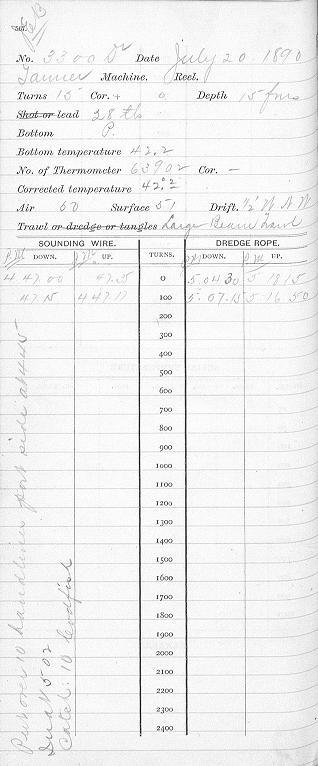 No. 3300 Dr Date July 20 1890
Tanner Machine. Reel.
Turns 15 Cor. + 0 Depth 15 fms
Shot or lead 38 lb
Bottom P.
Bottom temperature 42.2
No. of Thermometer 63902 Cor. —
Corrected temperature 42.2
Air 50 Surface 51 Drift. ½' W
Trawl or dredge or tangles Large Beam Trawl
SOUNDING WIRE. TURNS. DREDGE ROPE.
P.M. DOWN. P.M. UP. P.M. DOWN. P.M. UP.
4 47.00 47.25 0 5.04 30 5 18 15
47.15 4 47.17 100 5.07.15 5 16 50
200
300
400
500
600
700
800
900
1000
1100
1200
1300
1400
1500
1600
1700
1800
1900
2000
2100
2200
2300
2400
Put over 10 handlines port side at 4.45
5 02
Catch: 10 Codfish